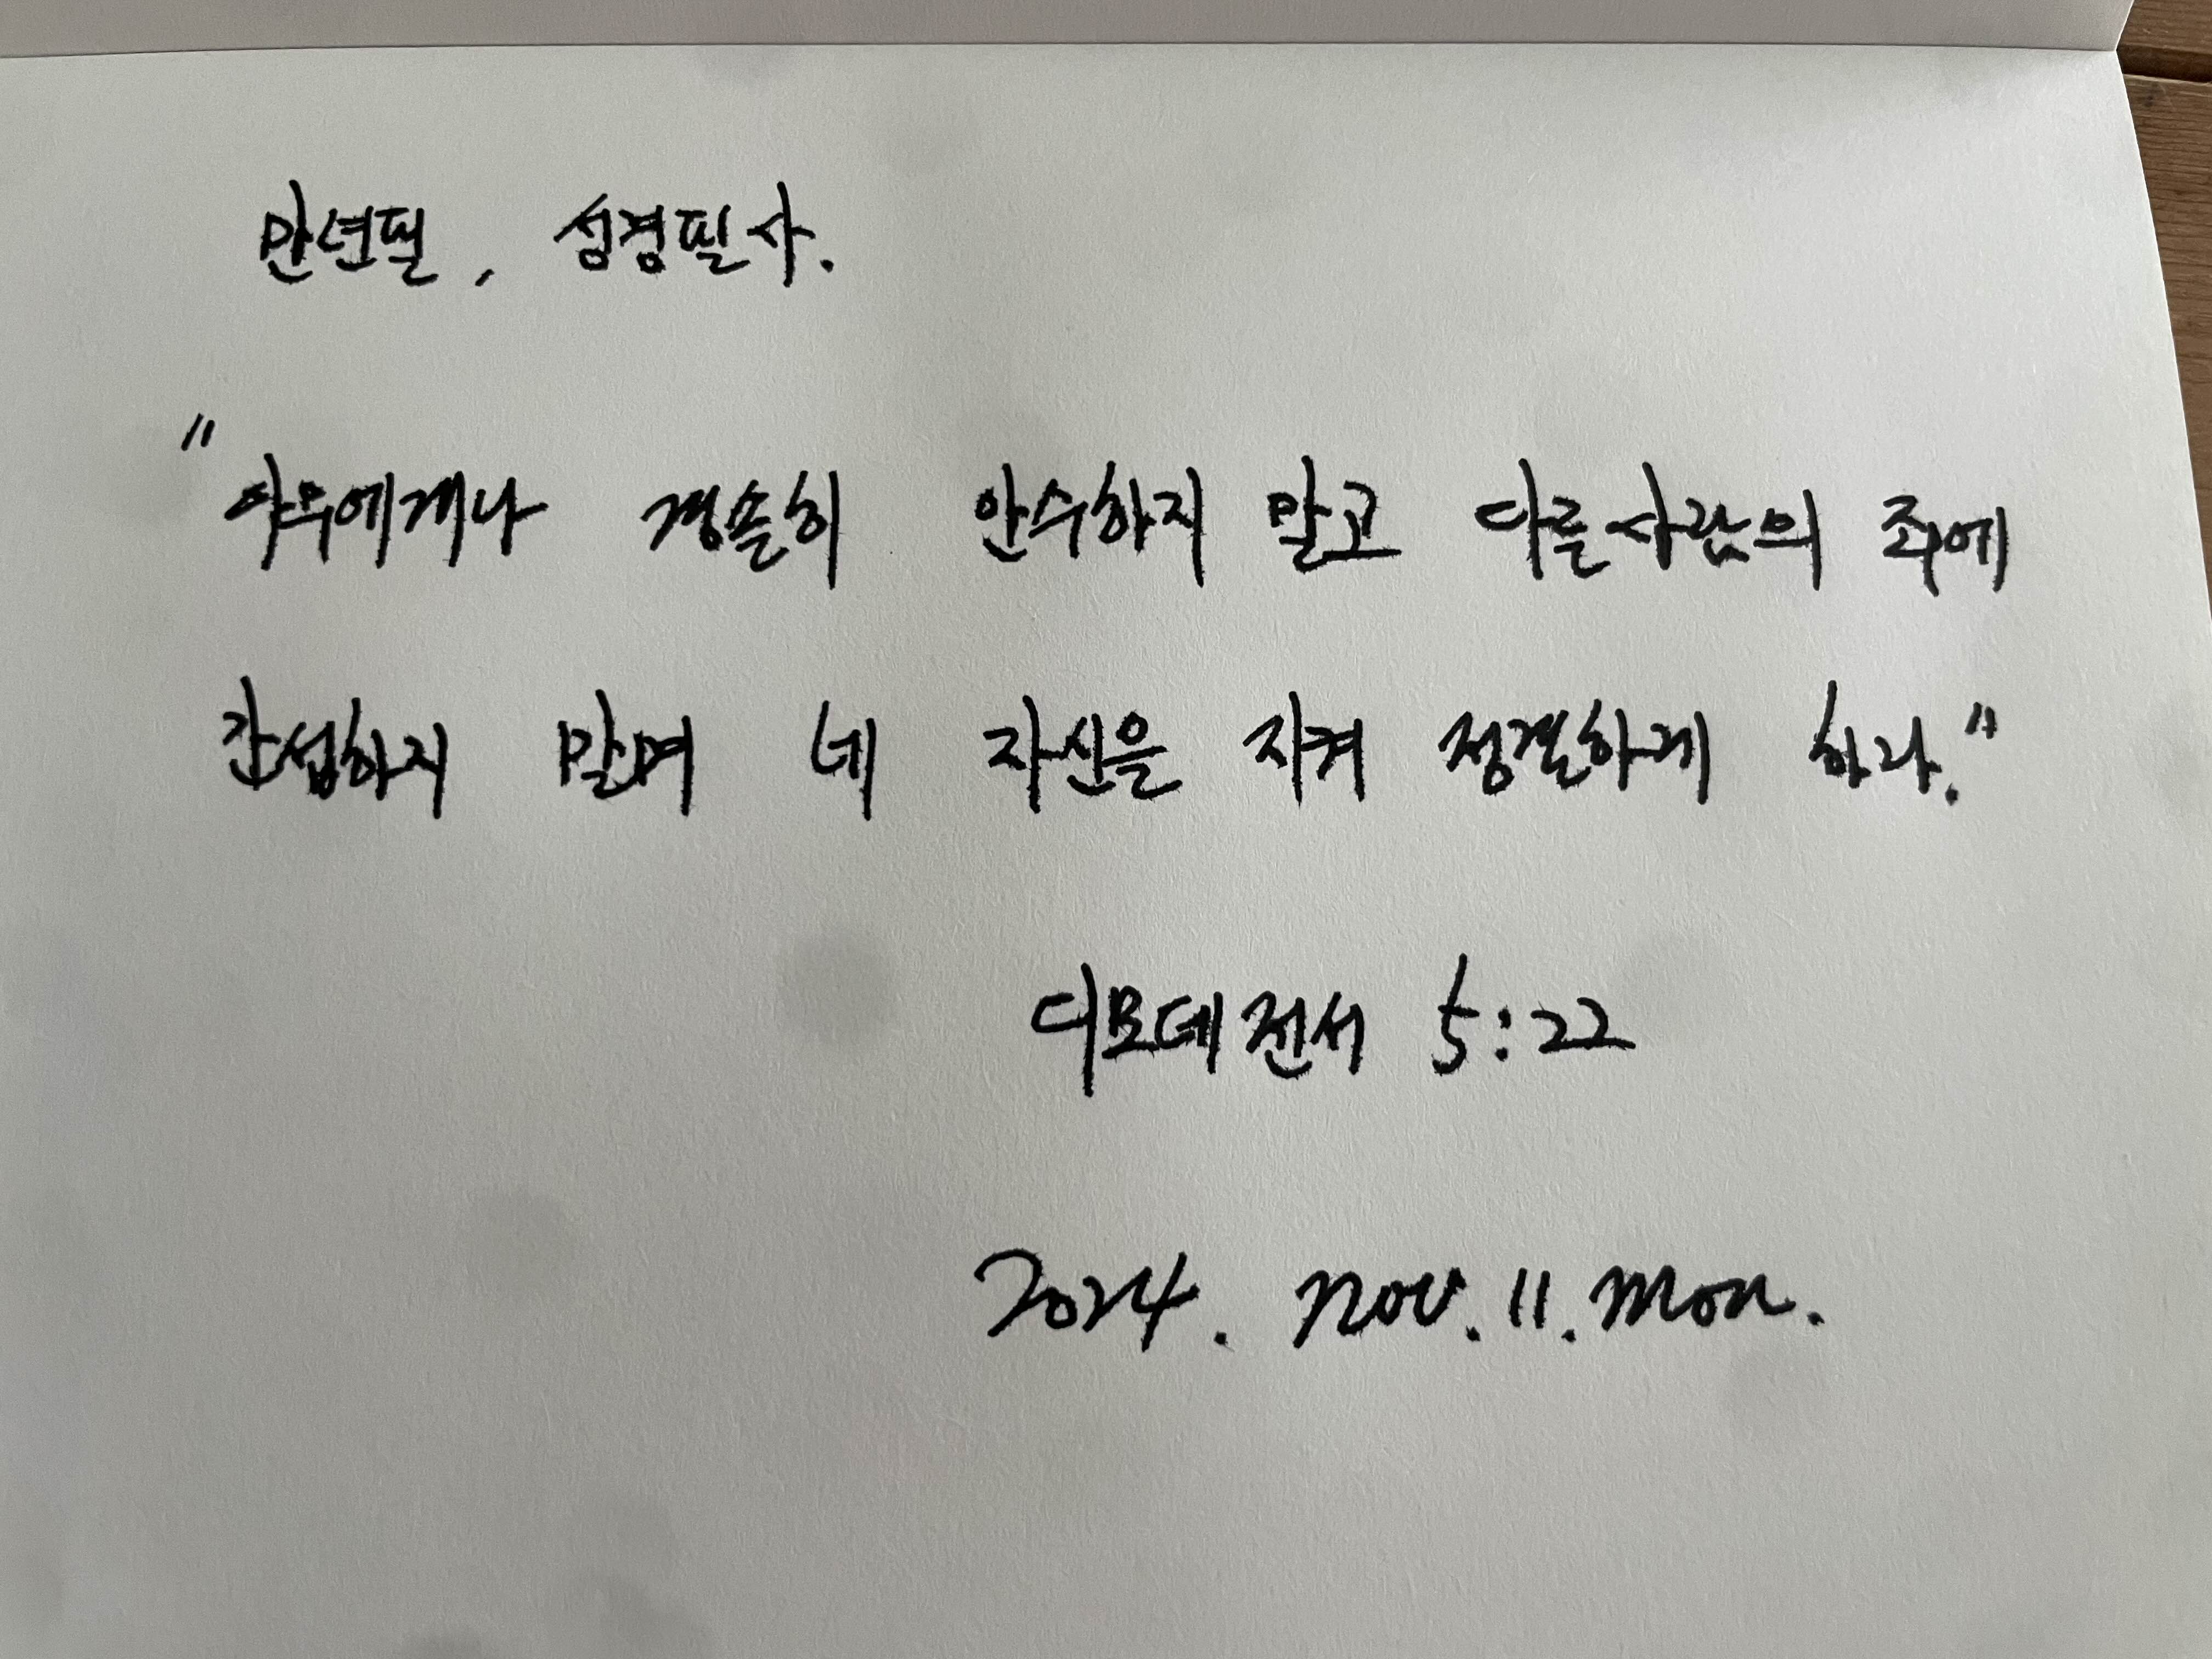 만년필, 성경필사.
"아무에게나 경솔히 안수하지 말고 다른사람의 죄에
간섭하지 말며 네 자신을 지켜 정결하게 하라."
디모데전서 5:22
2024. Nov. 11. Mon.